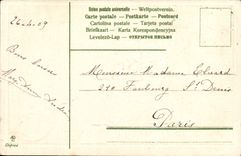 26.4.09
Union postale universelle — Weltpostverein.
Carte postale — Postkarte — Postcard
Cartolina postale — Tarjeta postal
Briefkaart — Karta Korespondencyjna
Levelező-Lap — ОТКРЫТОЕ ПИСЬМО
Bons baisers
Monsieur Madame Eluard
290 Faubourg St Denis
Paris